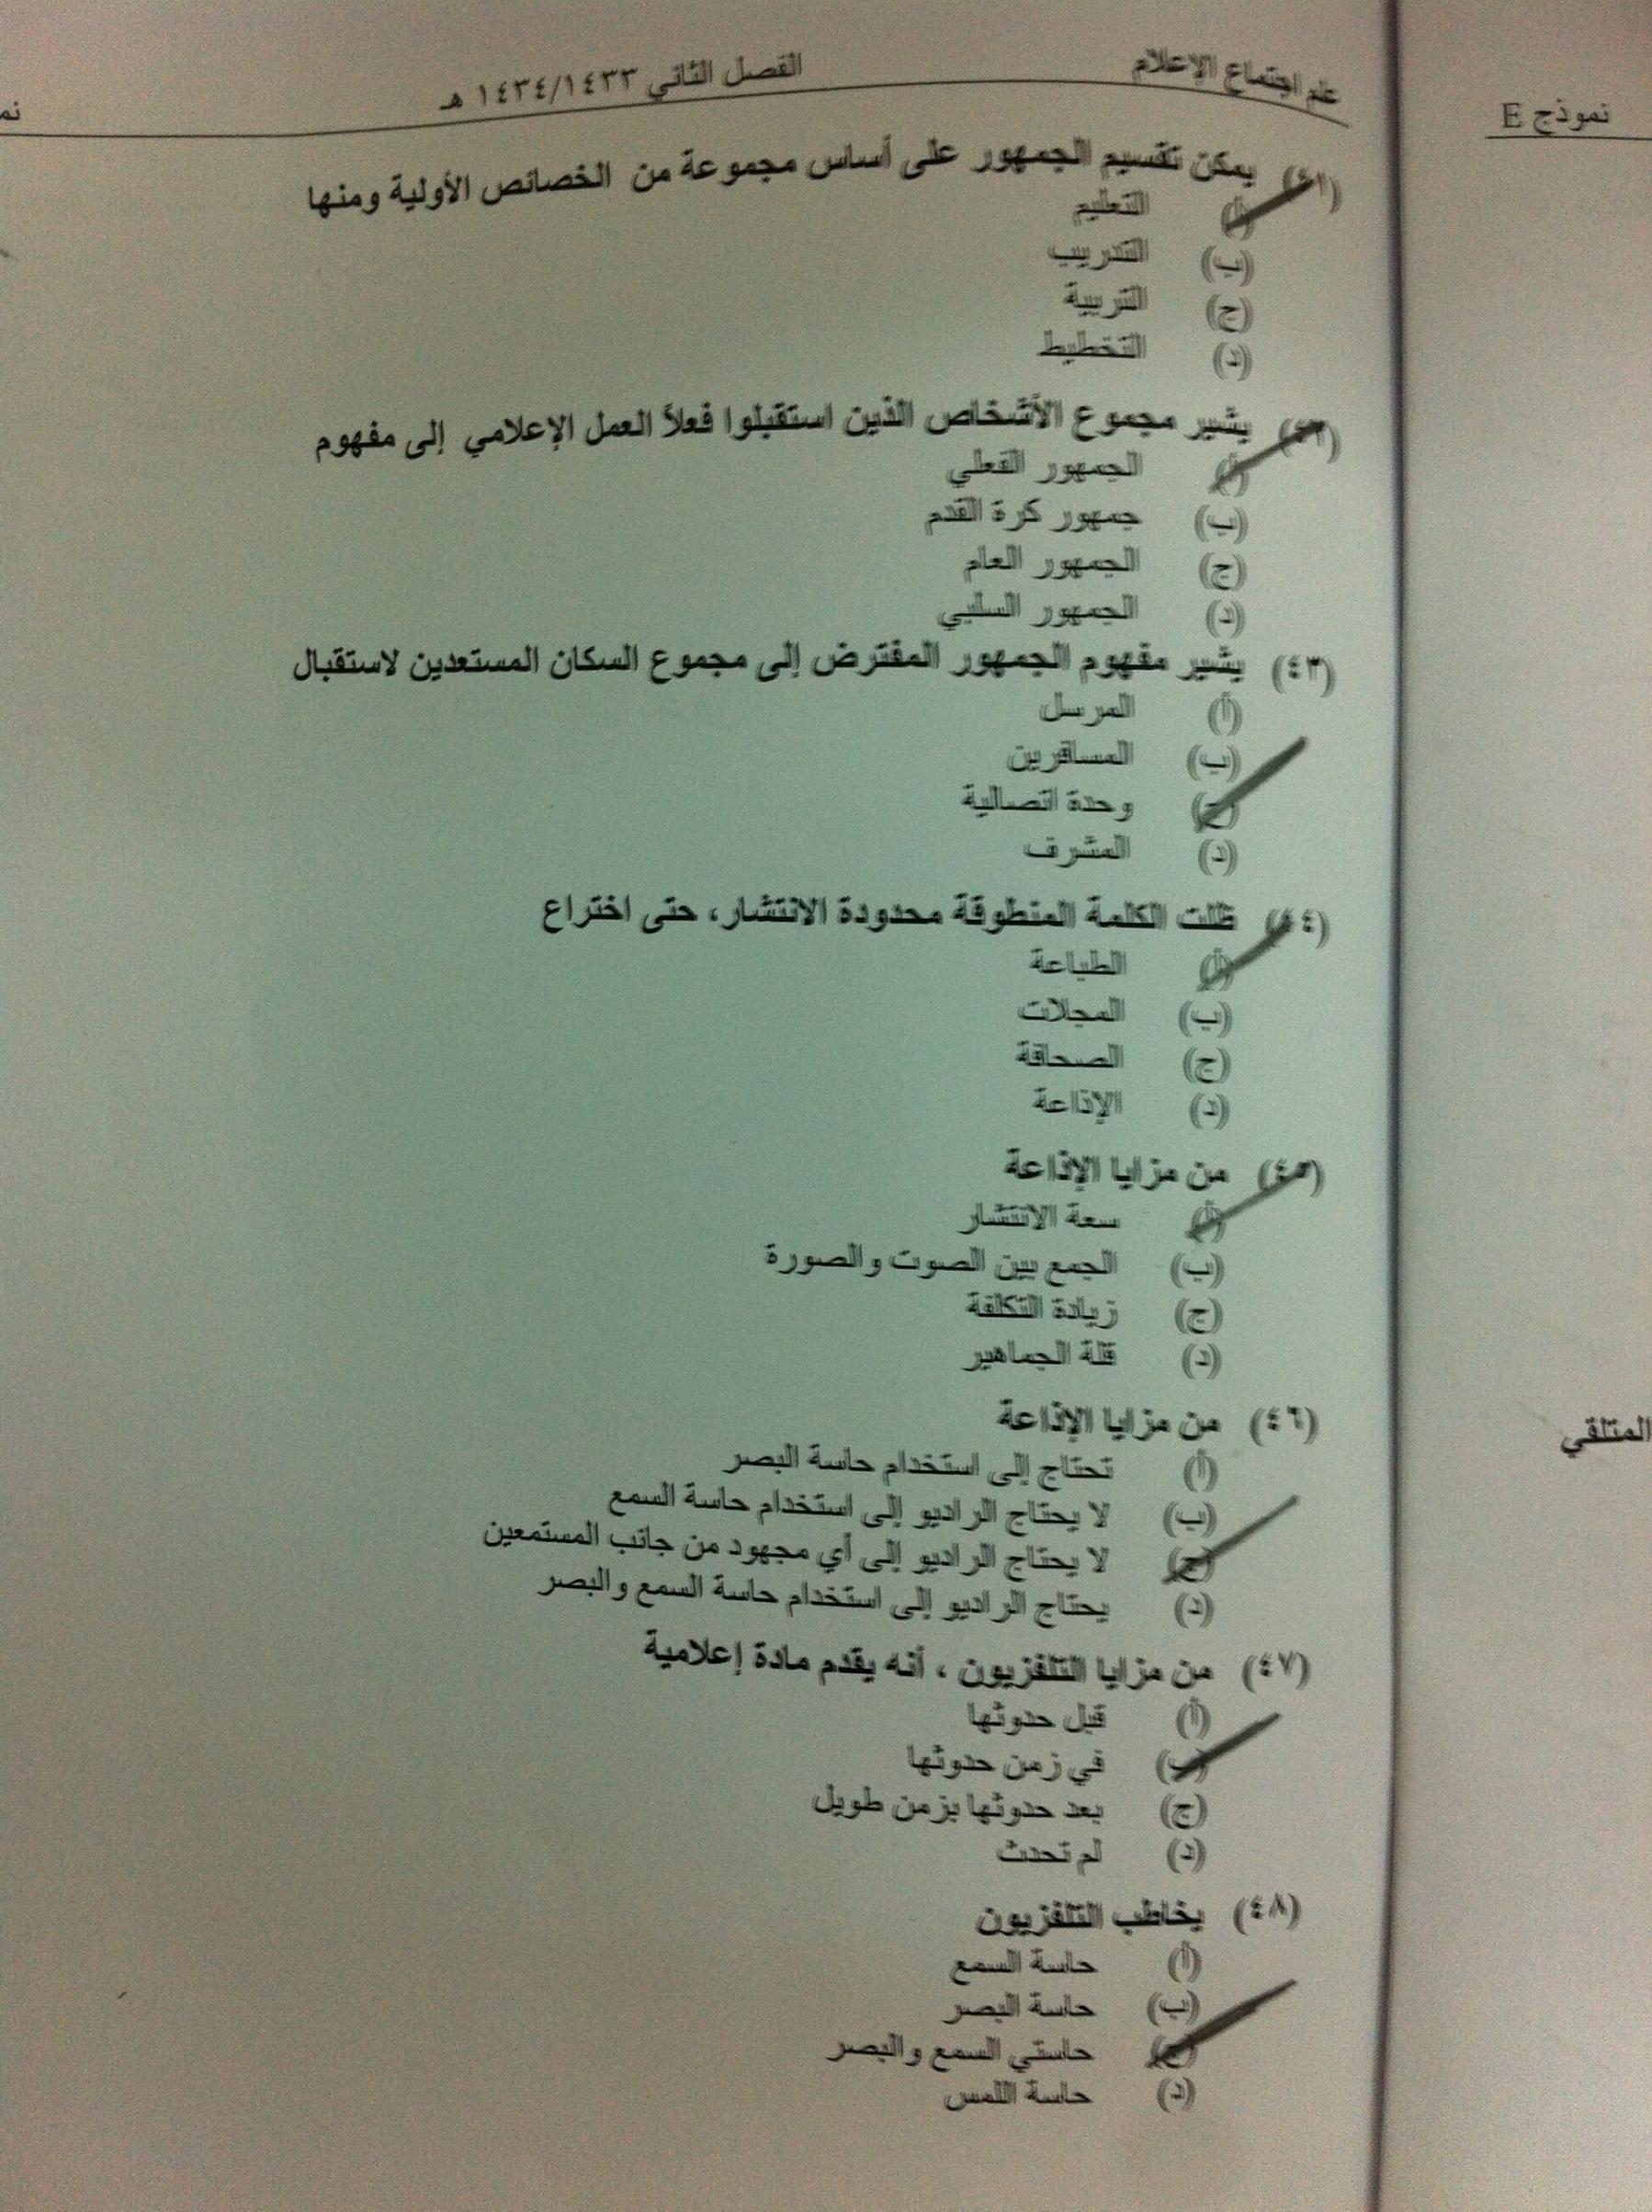 علم اجتماع الإعلام
الفصل الثاني ١٤٣٤/١٤٣٣ هـ
نموذج E
(٤١) يمكن تقسيم الجمهور على أساس مجموعة من الخصائص الأولية ومنها
(أ) التعليم
(ب) التدريب
(ج) التربية
(د) التخطيط
(٤٢) يشير مجموع الأشخاص الذين استقبلوا فعلاً العمل الإعلامي إلى مفهوم
(أ) الجمهور الفعلي
(ب) جمهور كرة القدم
(ج) الجمهور العام
(د) الجمهور السلبي
(٤٣) يشير مفهوم الجمهور المفترض إلى مجموع السكان المستعدين لاستقبال
(أ) المرسل
(ب) المسافرين
(ج) وحدة اتصالية
(د) المشرف
(٤٤) ظلت الكلمة المنطوقة محدودة الانتشار، حتى اختراع
(أ) الطباعة
(ب) المجلات
(ج) الصحافة
(د) الإذاعة
(٤٥) من مزايا الإذاعة
(أ) سعة الانتشار
(ب) الجمع بين الصوت والصورة
(ج) زيادة التكلفة
(د) قلة الجماهير
(٤٦) من مزايا الإذاعة
(أ) تحتاج إلى استخدام حاسة البصر
(ب) لا يحتاج الراديو إلى استخدام حاسة السمع
(ج) لا يحتاج الراديو إلى أي مجهود من جانب المستمعين
(د) يحتاج الراديو إلى استخدام حاسة السمع والبصر
(٤٧) من مزايا التلفزيون ، أنه يقدم مادة إعلامية
(أ) قبل حدوثها
(ب) في زمن حدوثها
(ج) بعد حدوثها بزمن طويل
(د) لم تحدث
(٤٨) يخاطب التلفزيون
(أ) حاسة السمع
(ب) حاسة البصر
(ج) حاستي السمع والبصر
(د) حاسة اللمس
المتلقي